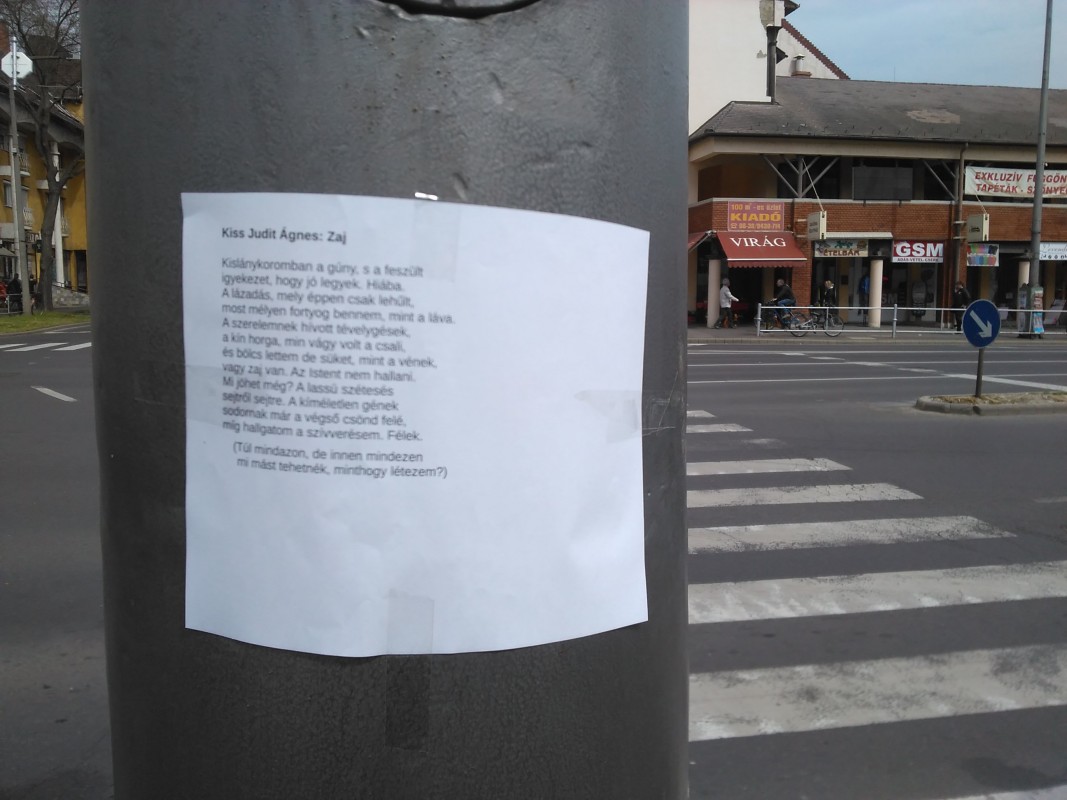 Kiss Judit Ágnes: Zaj
Kislánykoromban a gúny, s a feszült
igyekezet, hogy jó legyek. Hiába.
A lázadás, mely éppen csak lehűlt,
most mélyen fortyog bennem, mint a láva.
A szerelemnek hívott tévelygések,
a kín horga, min vágy volt a csali,
és bölcs lettem de süket, mint a vének,
vagy zaj van. Az Istent nem hallani.
Mi jöhet még? A lassú szétesés
sejtről sejtre. A kíméletlen gének
sodornak már a végső csönd felé,
míg hallgatom a szívverésem. Félek.
(Túl mindazon, de innen mindezen
mi mást tehetnék, minthogy létezem?)
EXKLUZÍV FÜGGÖN
TAPÉTÁK - SZŐNYE
100 m² - es üzlet
KIADÓ
VIRÁG
ÉTELBÁR
GSM